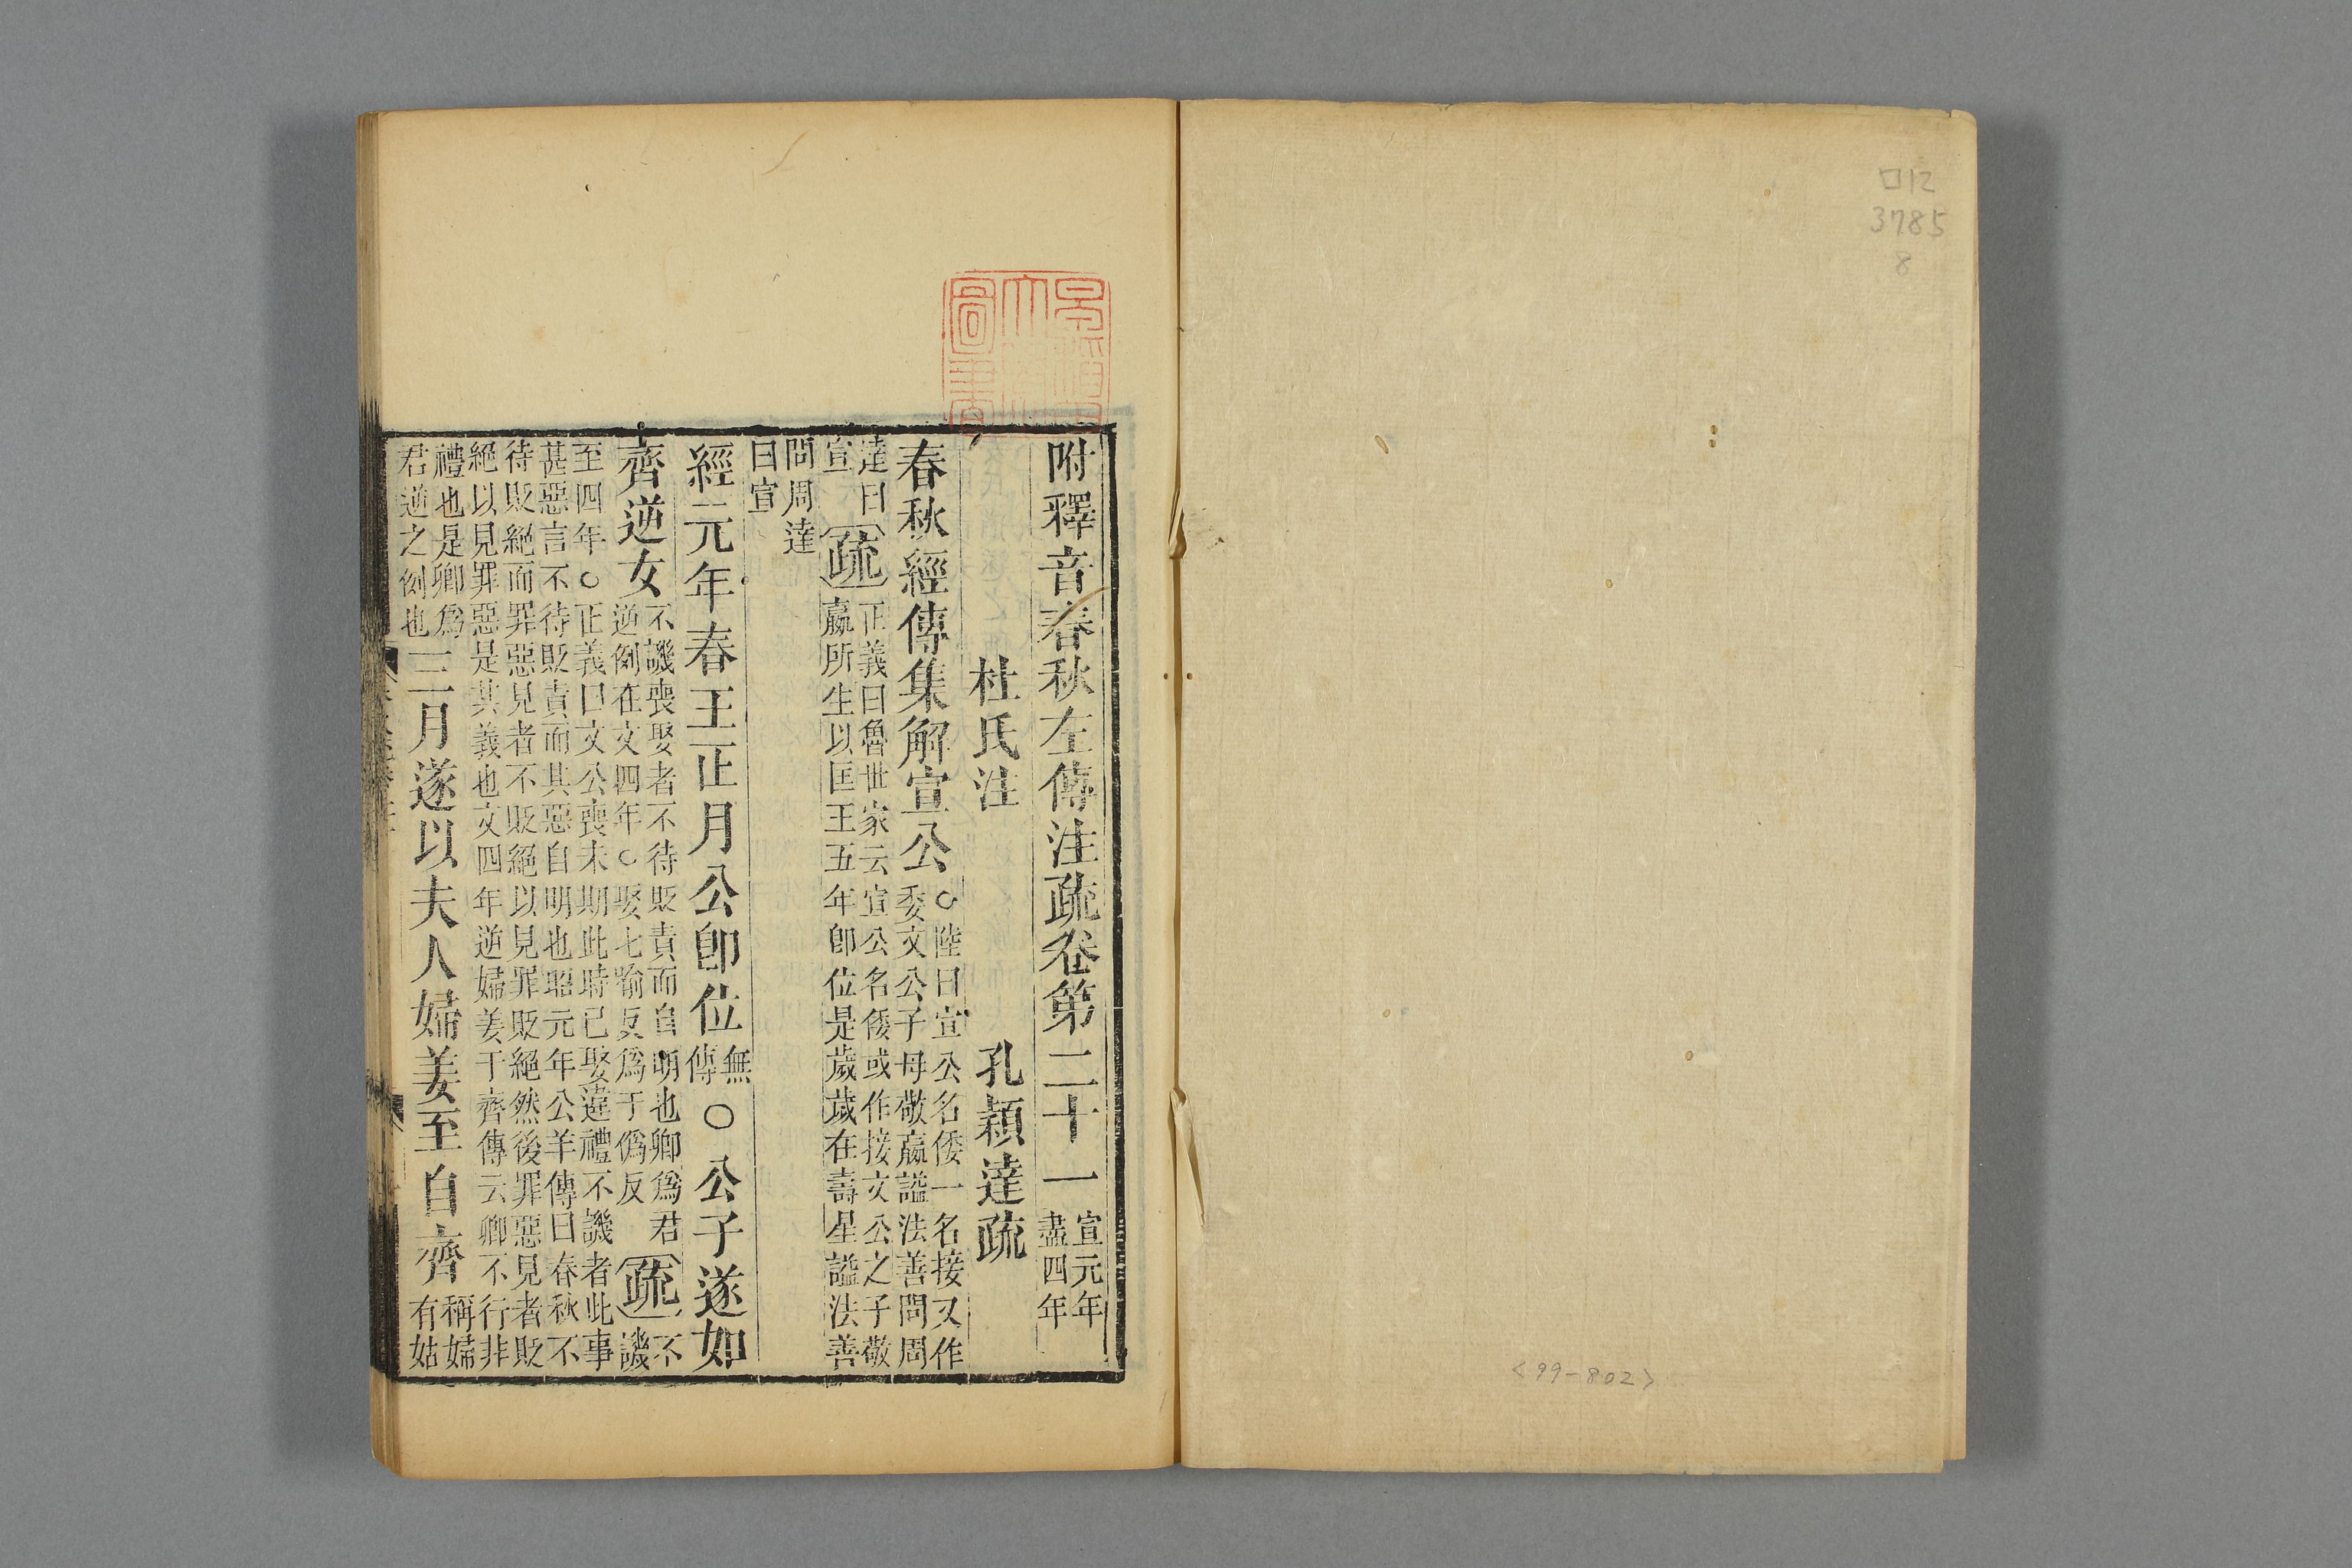 口12
3785
8
<99-802>
附釋音春秋左傳注疏卷第二十一 宣元年
盡四年
杜氏注 孔穎達疏
春秋經傳集解宣公 ○陸曰宣公名倭一名接又作
委文公子母敬嬴謚法善問周
達曰
宣 疏 正義曰魯世家云宣公名倭或作接文公之子敬
嬴所生以匡王五年卽位是歲歲在壽星謚法善
問周達
曰宣
經元年春王正月公卽位 無
傳 ○公子遂如
齊逆女 不譏喪娶者不待貶責而自明也卿爲君
逆例在文四年○娶七喻反爲于僞反 疏 不
譏
至四年○正義曰文公喪未期此時已娶違禮不譏者此事
甚惡言不待貶責而其惡自明也昭元年公羊傳曰春秋不
待貶絕而罪惡見者不貶絕以見罪貶絕然後罪惡見者貶
絕以見罪惡是其義也文四年逆婦姜于齊傳云卿不行非
禮也是卿爲
君逆之例也 三月遂以夫人婦姜至自齊 稱婦
有姑